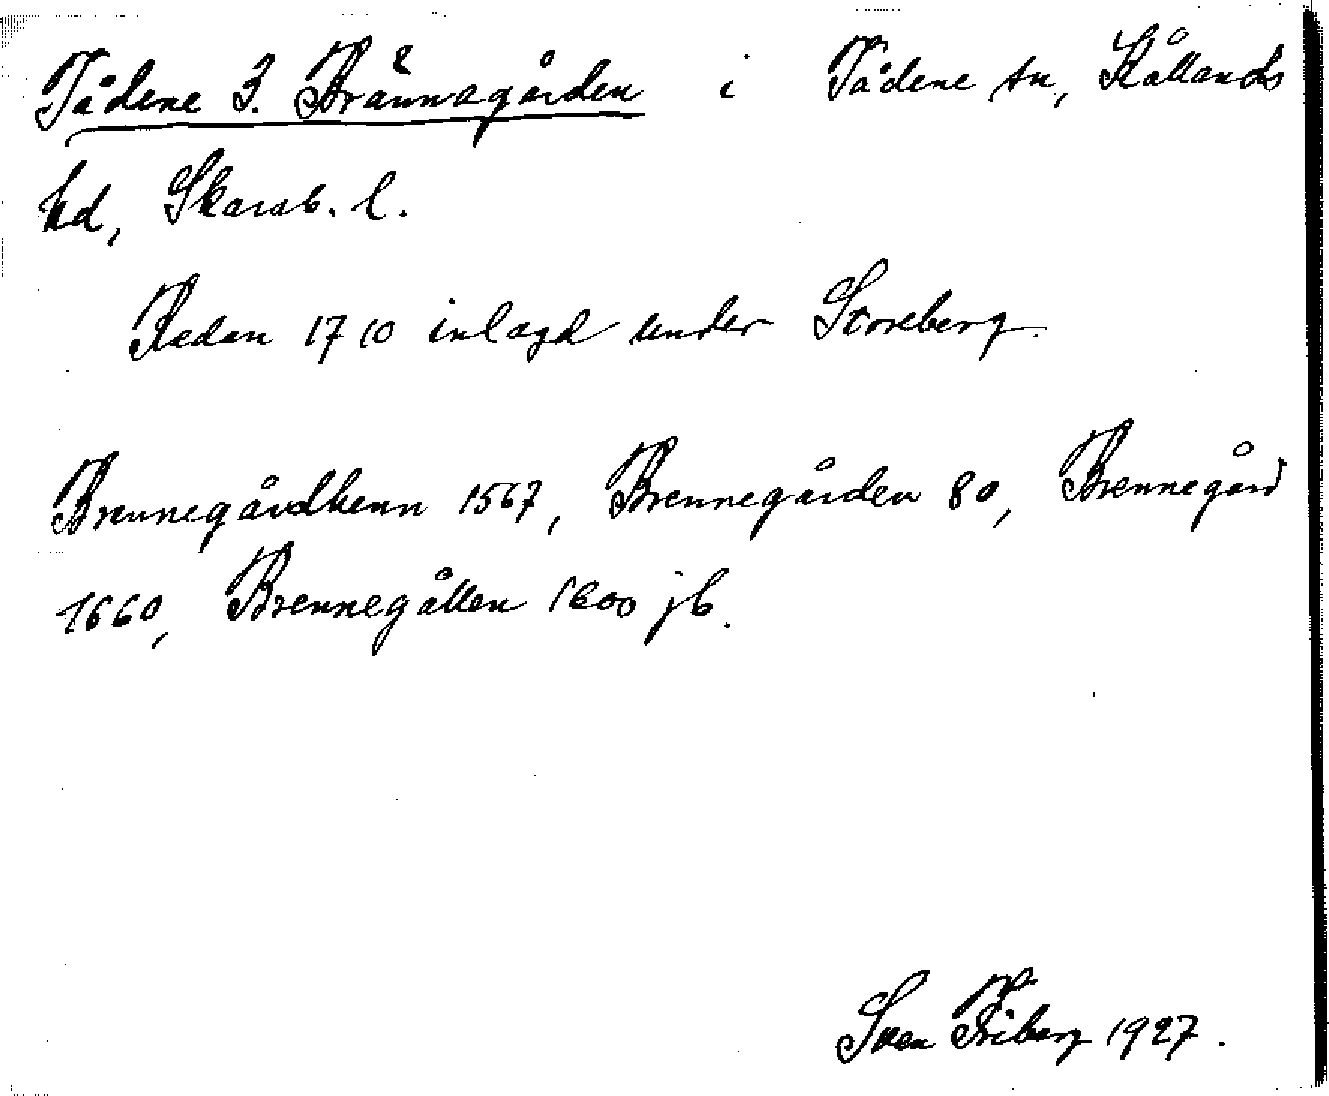 Tådene 3. Brännagården i Tådene sn, Kållands
hd, Skarab. l.
Redan 1710 inlagd under Storeberg.
Brennegårdhenn 1567, Brennegården 80, Brennegård
1660, Brennegållen 1600 jb.
Sven Friberg 1927.